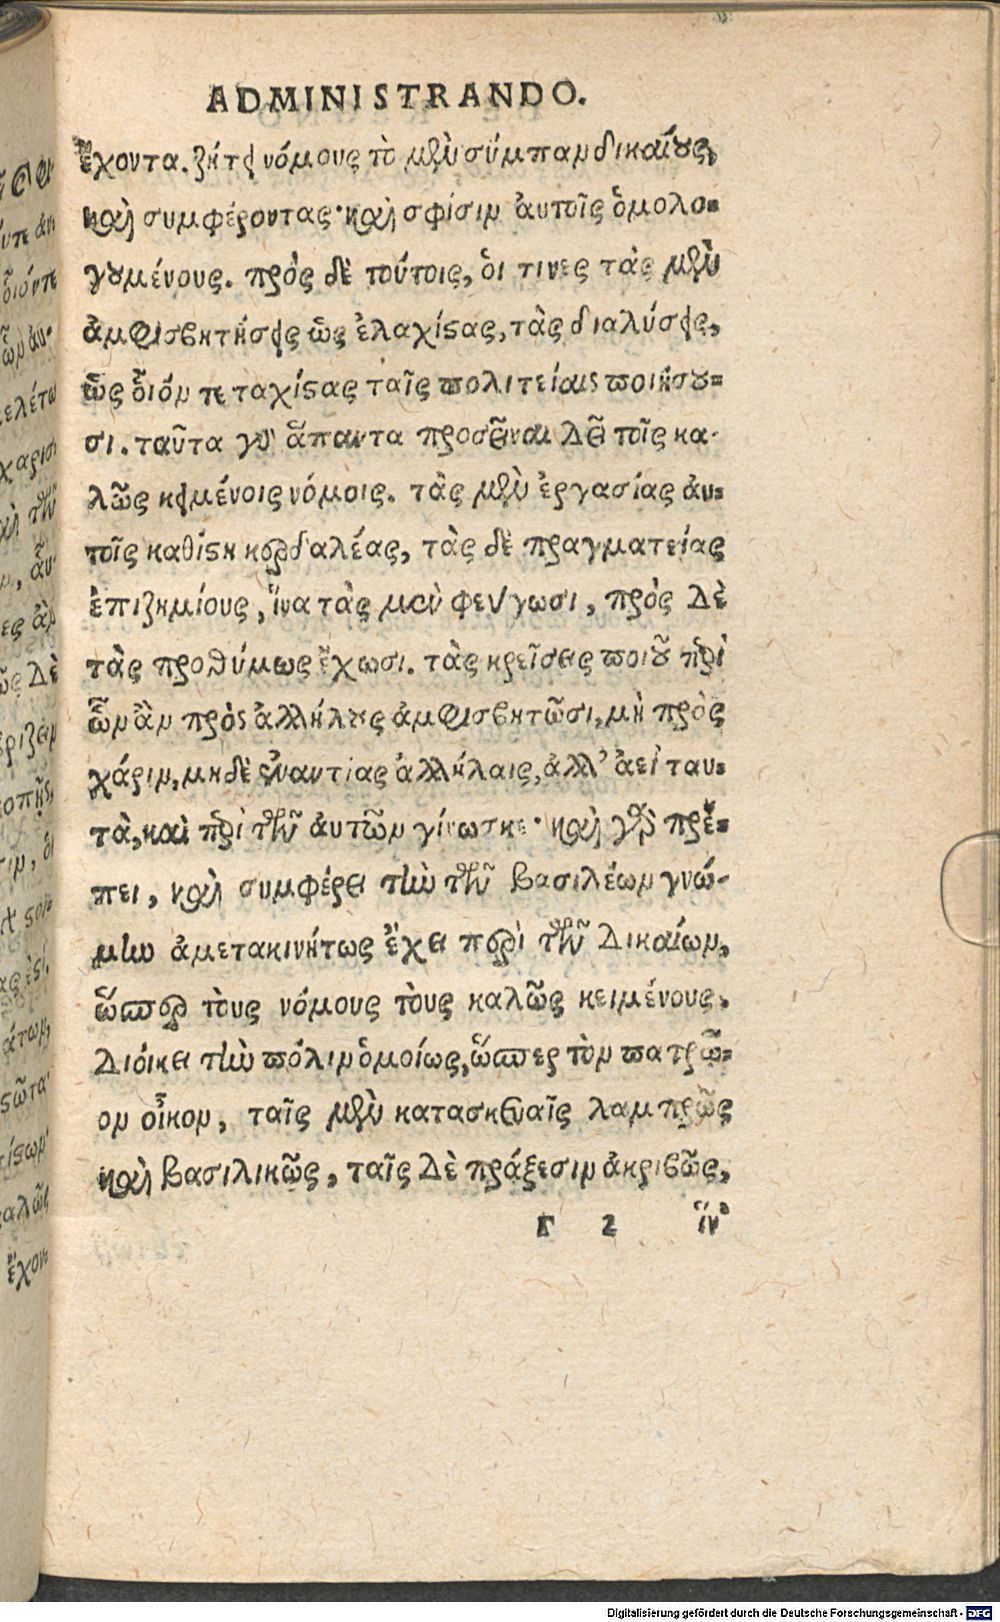 ADMINISTRANDO.
ἔχοντα. ζήτει νόμους τὸ μὲν σύμπαν δικαίους,
καὶ συμφέροντας· καὶ σφίσιν αὐτοῖς ὁμολο-
γουμένους. πρὸς δὲ τούτοις, οἵ τινες τὰς μὲν
ἀμφισβητήσεις ὡς ἐλαχίστας, τὰς διαλύσεις,
ὡς οἷόν τε ταχίστας ταῖς πολιτείαις ποιήσου-
σι. ταῦτα γὰρ ἅπαντα προσεῖναι δεῖ τοῖς κα-
λῶς κειμένοις νόμοις. τὰς μὲν ἐργασίας αὐ-
τοῖς καθίστη κερδαλέας, τὰς δὲ πραγματείας
ἐπιζημίους, ἵνα τὰς μὲν φεύγωσι, πρὸς δὲ
τὰς προθύμως ἔχωσι. τὰς κρεῖσεις ποιοῦ περὶ
ὧν ἂν πρὸς ἀλλήλους ἀμφισβητῶσι, μὴ πρὸς
χάριν, μηδὲ ἐναντίας ἀλλήλαις, ἀλλ' ἀεὶ ταυ-
τὰ, καὶ περὶ τῶν αὐτῶν γίνωσκε· καὶ γὰρ πρέ-
πει, καὶ συμφέρει τὴν τῶν βασιλέων γνώ-
μην ἀμετακινήτως ἔχει περὶ τῶν δικαίων,
ὥσπερ τοὺς νόμους τοὺς καλῶς κειμένους.
Διόικει τὴν πόλιν ὁμοίως, ὥσπερ τὸν πατρῷ-
ον οἶκον, ταῖς μὲν κατασκευαῖς λαμπρῶς
καὶ βασιλικῶς, ταῖς δὲ πράξεσιν ἀκριβῶς,
Γ 2 ἵν'
Digitalisierung gefördert durch die Deutsche Forschungsgemeinschaft - DFG